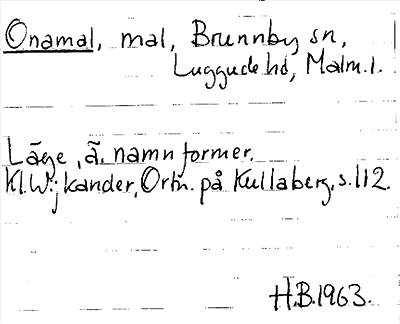 Onamal, mal, Brunnby sn,
Luggude hd, Malm. l.
Läge, ä. namnformer.
Kl. Wijkander, Ortn. på Kullaberg, s. 112.
H.B. 1963.